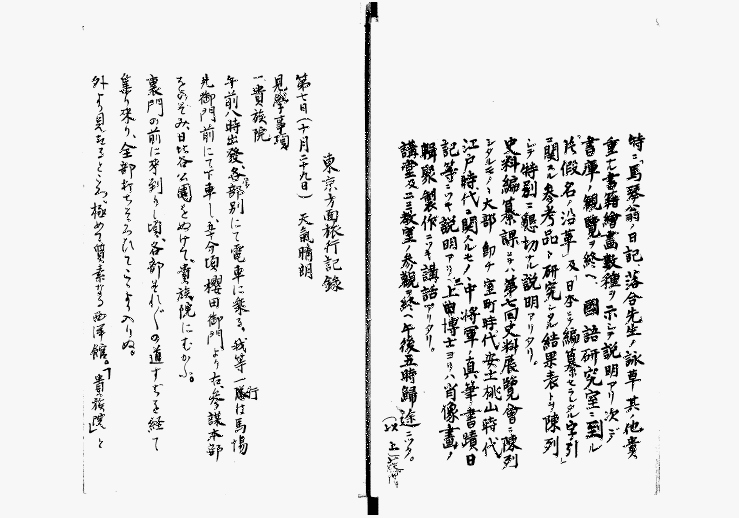 特ニ馬琴翁ノ日記落合先生ノ詠草其ノ他貴
重ナ書籍繪畫數種ヲ示シテ説明アリ次デ
書庫ノ觀覽ヲ終ヘ、國語研究室ニ到ル
「片假名ノ沿革」及「日本ニテ編纂セラレタル字引」
ニ關スル參考品ト研究シタル結果表トヲ陳列
シテ特別ニ懇切ナル説明アリタリ。
史料編纂課ニテハ第七回史料展覽會ニ陳列
シタルモノノ大部 即チ室町時代安土桃山時代
江戸時代ニ關スルモノノ中將軍ノ眞筆書蹟日
記等ニツキ説明アリ、三上博士ヨリハ肖像畫ノ
輯聚製作ニツキ講話アリタリ。
講堂及ニ三教室ノ參觀ヲ終ヘ午後五時歸途ニツク。
(以上
東京方面旅行記録
第七日(十月二十九日) 天氣晴朗
見學事項
一貴族院
午前八時出發、各部別にて電車に乘る。我等一行は馬場
先御門前にて下車し、五分頃櫻田御門より右參謀本部
をのぞみ日比谷公園をぬけて、貴族院にむかふ。
裏門の前に着到りし頃、各部それ〲の道すぢを經て
集り來り、全部打ちそろひてこゝより入りぬ。
外より見たるところ、極めて質素なる西洋館。「貴族院」と